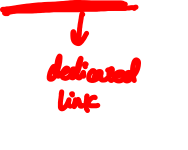 dedicated
link